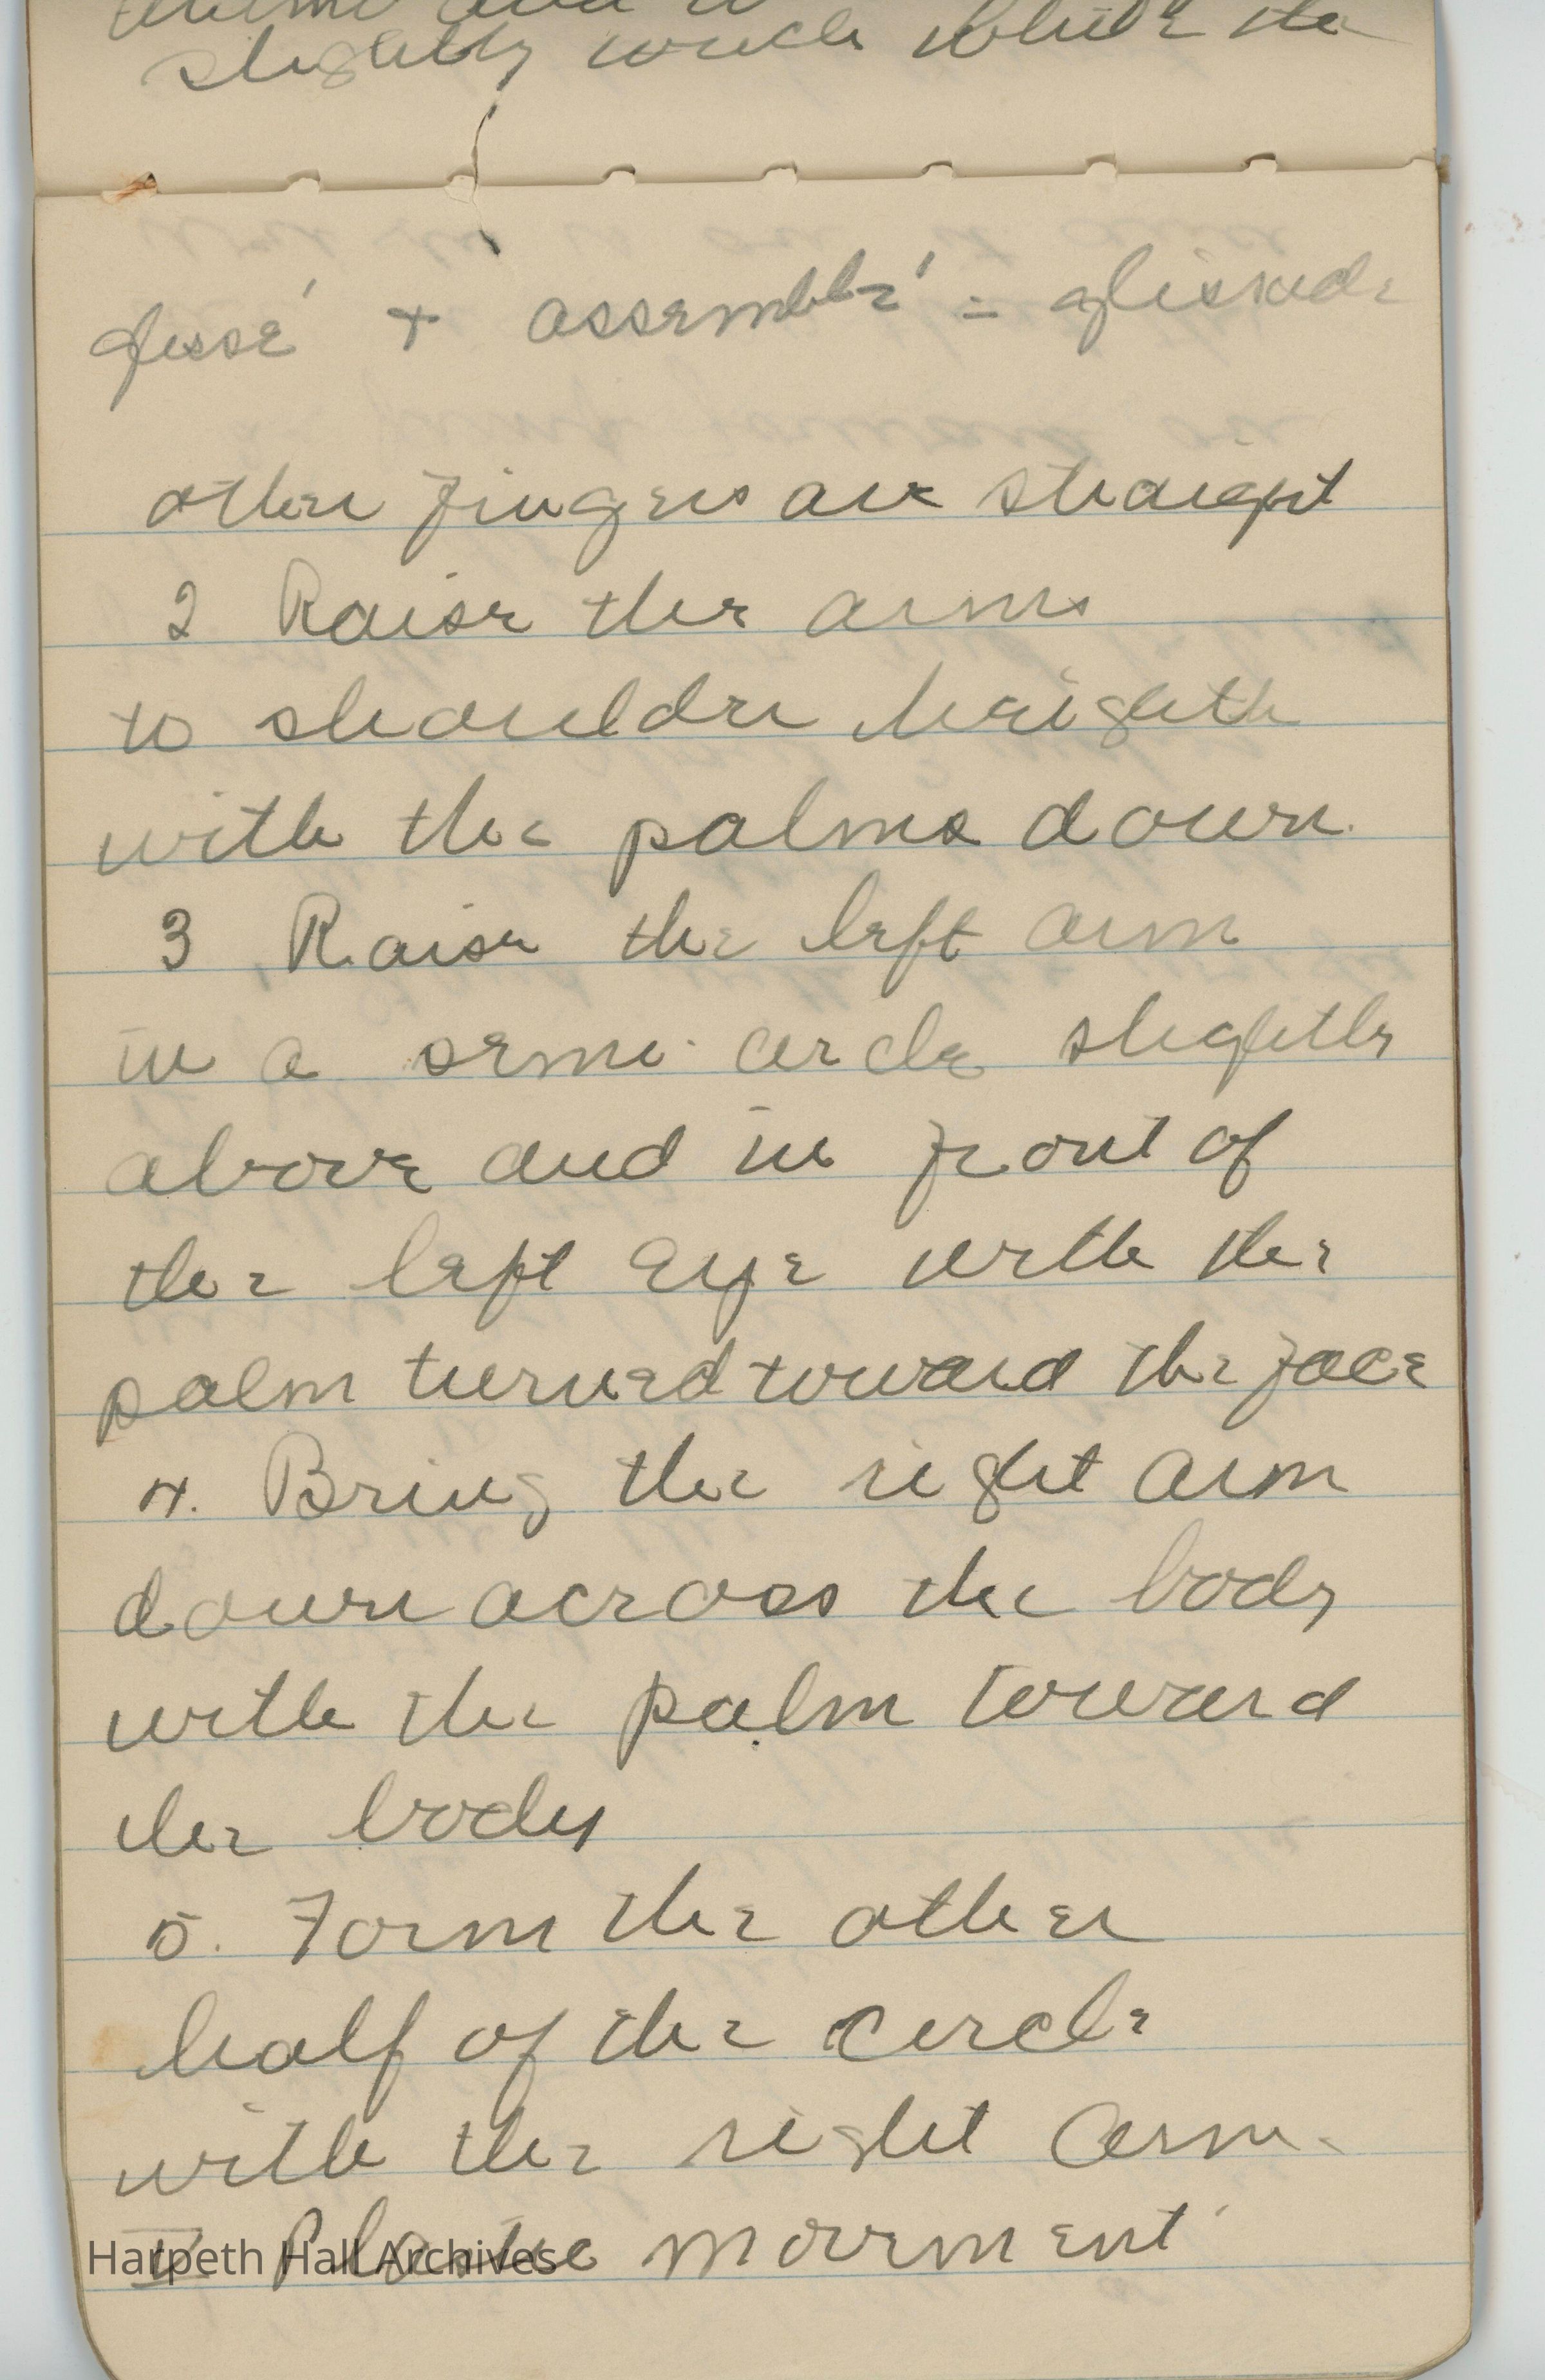 slightly touch while the
glissé + assemblé = glissade
other fingers are straight
2 Raise the arms
to shoulder heighth
with the palms down.
3 Raise the left arm
in a semi-circle slightly
above and in front of
the left eye with the
palm turned toward the face
4. Bring the right arm
down across the body
with the palm toward
the body
5. Form the other
half of the circle
with the right arm.
V Plastic movement
Harpeth Hall Archives